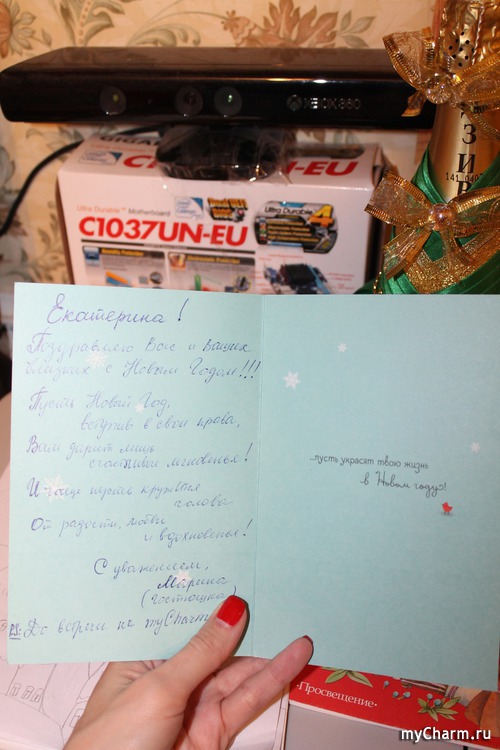 XBOX 360
GIGA
C1037UN-EU
Ultra Durable™ Motherboard
Ultra Durable 4
C1037UN-EU
141 040
З
И
В
Екатерина!
Поздравляю Вас и Ваших
близких с Новым Годом!!!
Пусть Новый Год,
вступив в свои права,
Вам дарит лишь
счастливые мгновенья!
И чаще пусть кружится
голова
От радости, любви
и вдохновенья!
С уважением,
Марина
(гостюшка)
P.S: До встречи на myCharm
...пусть украсят твою жизнь
в Новом году!
•Просвещение•
myCharm.ru